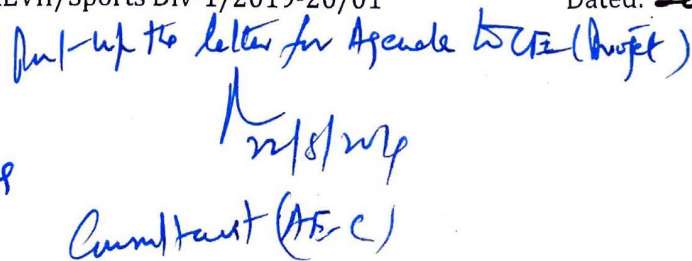 EVII/Sports Div-1/2019-20/01 Dated:
Put-up the letter for Agenda to CE (Projet)
22/8/2019
Consultant (AE-C)